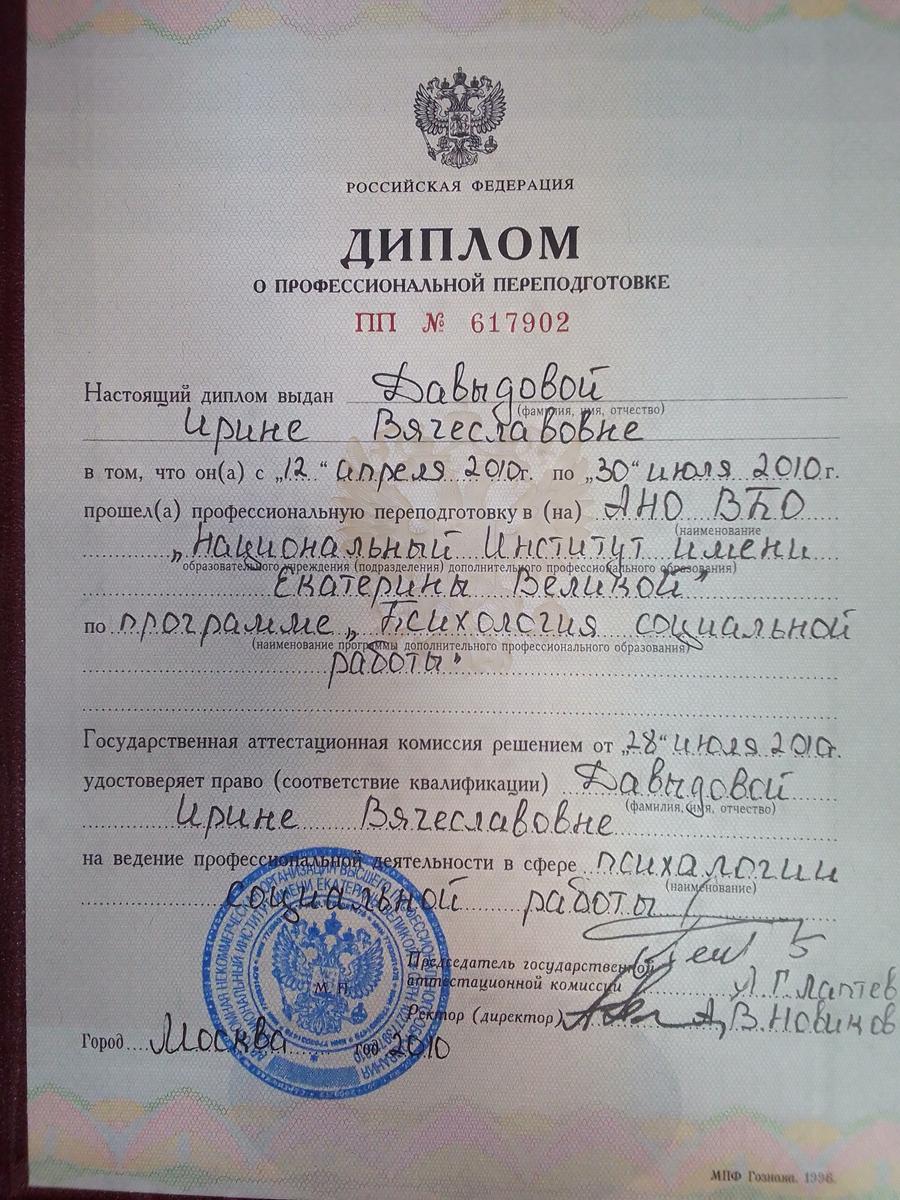 РОССИЙСКАЯ ФЕДЕРАЦИЯ
ДИПЛОМ
О ПРОФЕССИОНАЛЬНОЙ ПЕРЕПОДГОТОВКЕ
ПП № 617902
Настоящий диплом выдан Давыдовой
(фамилия, имя, отчество)
Ирине Вячеславовне
в том, что он(а) с „12“ апреля 2010г. по „30“ июля 2010г.
прошел(а) профессиональную переподготовку в (на) АНО ВПО
(наименование
„Национальный Институт имени
образовательного учреждения (подразделения) дополнительного профессионального образования)
Екатерины Великой”
по программе „Психология социальной
(наименование программы дополнительного профессионального образования)
работы”
Государственная аттестационная комиссия решением от „28“ июля 2010г.
удостоверяет право (соответствие квалификации) Давыдовой
(фамилия, имя, отчество)
Ирине Вячеславовне
на ведение профессиональной деятельности в сфере психалогии
(наименование)
социальной работы
Председатель государственной
аттестационной комиссии Л.Г.Лаптев
Ректор (директор) А.В.Новиков
М П
Город Москва год 2010
МПФ Гознака. 1996.